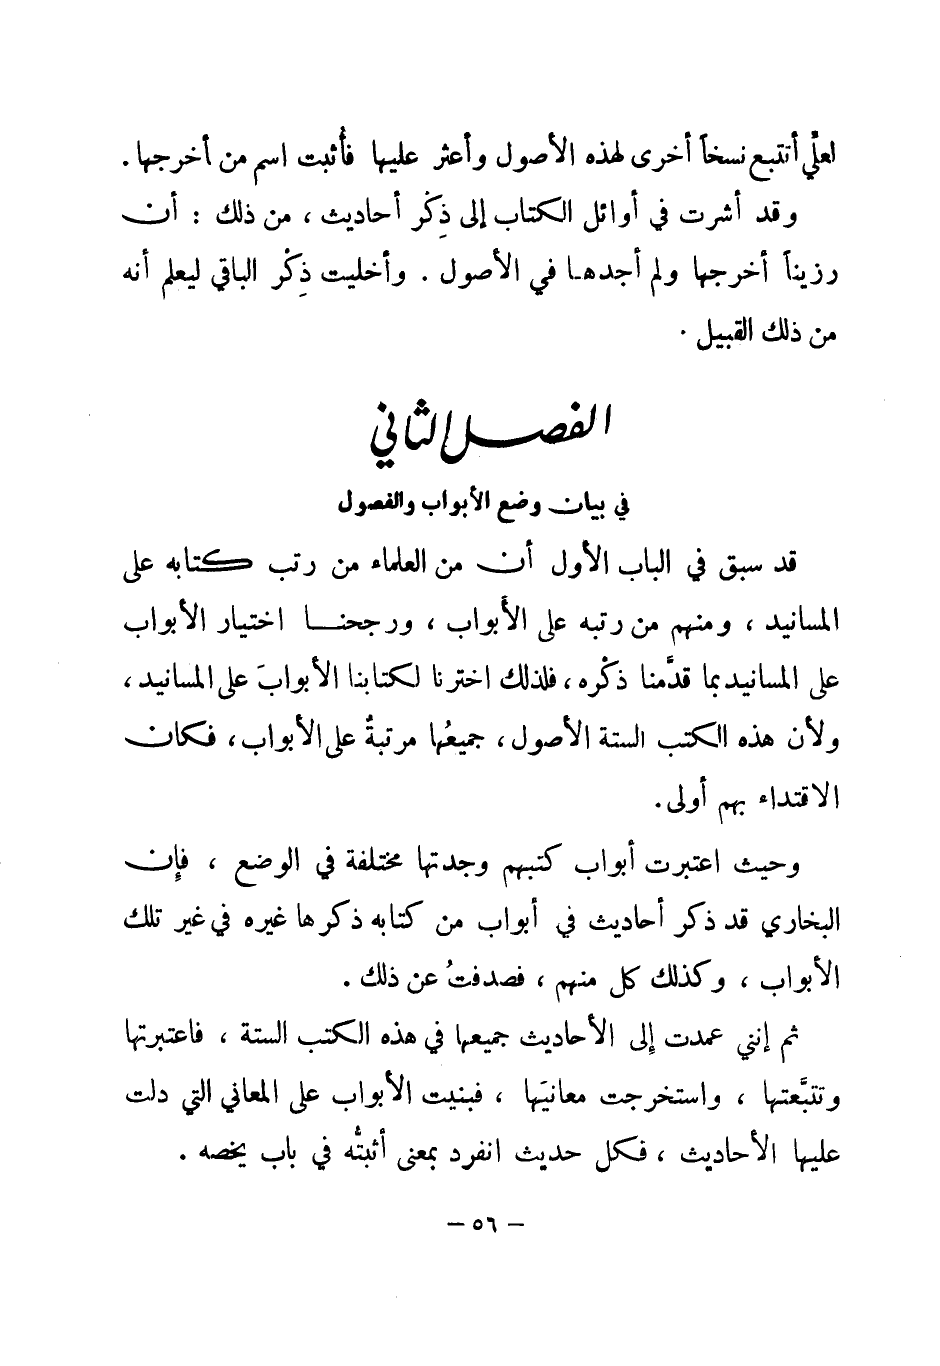 لعلِّي أتتبع نسخاً أخرى لهذه الأصول وأعثر عليها فأُثبت اسم من أخرجها .
وقد أشرت في أوائل الكتاب إلى ذِكْر أحاديث ، من ذلك : أن
رزيناً أخرجها ولم أجدها في الأصول . وأخليت ذِكْر الباقي ليعلم أنه
من ذلك القبيل .
الفصل الثاني
في بيان وضع الأبواب والفصول
قد سبق في الباب الأول أن من العلماء من رتب كتابه على
المسانيد ، ومنهم من رتبه على الأَبواب ، ورجحنا اختيار الأبواب
على المسانيد بما قدَّمنا ذكْره ، فلذلك اخترنا لكتابنا الأبوابَ على المسانيد ،
ولأن هذه الكتب الستة الأصول ، جميعُها مرتبةٌ على الأبواب ، فكان
الاقتداء بهم أولى .
وحيث اعتبرت أبواب كتبهم وجدتها مختلفة في الوضع ، فإن
البخاري قد ذكر أحاديث في أبواب من كتابه ذكرها غيره في غير تلك
الأبواب ، وكذلك كل منهم ، فصدفتُ عن ذلك .
ثم إنني عمدت إلى الأحاديث جميعها في هذه الكتب الستة ، فاعتبرتها
وتتبَّعتها ، واستخرجت معانيَها ، فبنيت الأبواب على المعاني التي دلت
عليها الأحاديث ، فكل حديث انفرد بمعنى أثبتُّه في باب يخصه .
— ٥٦ —